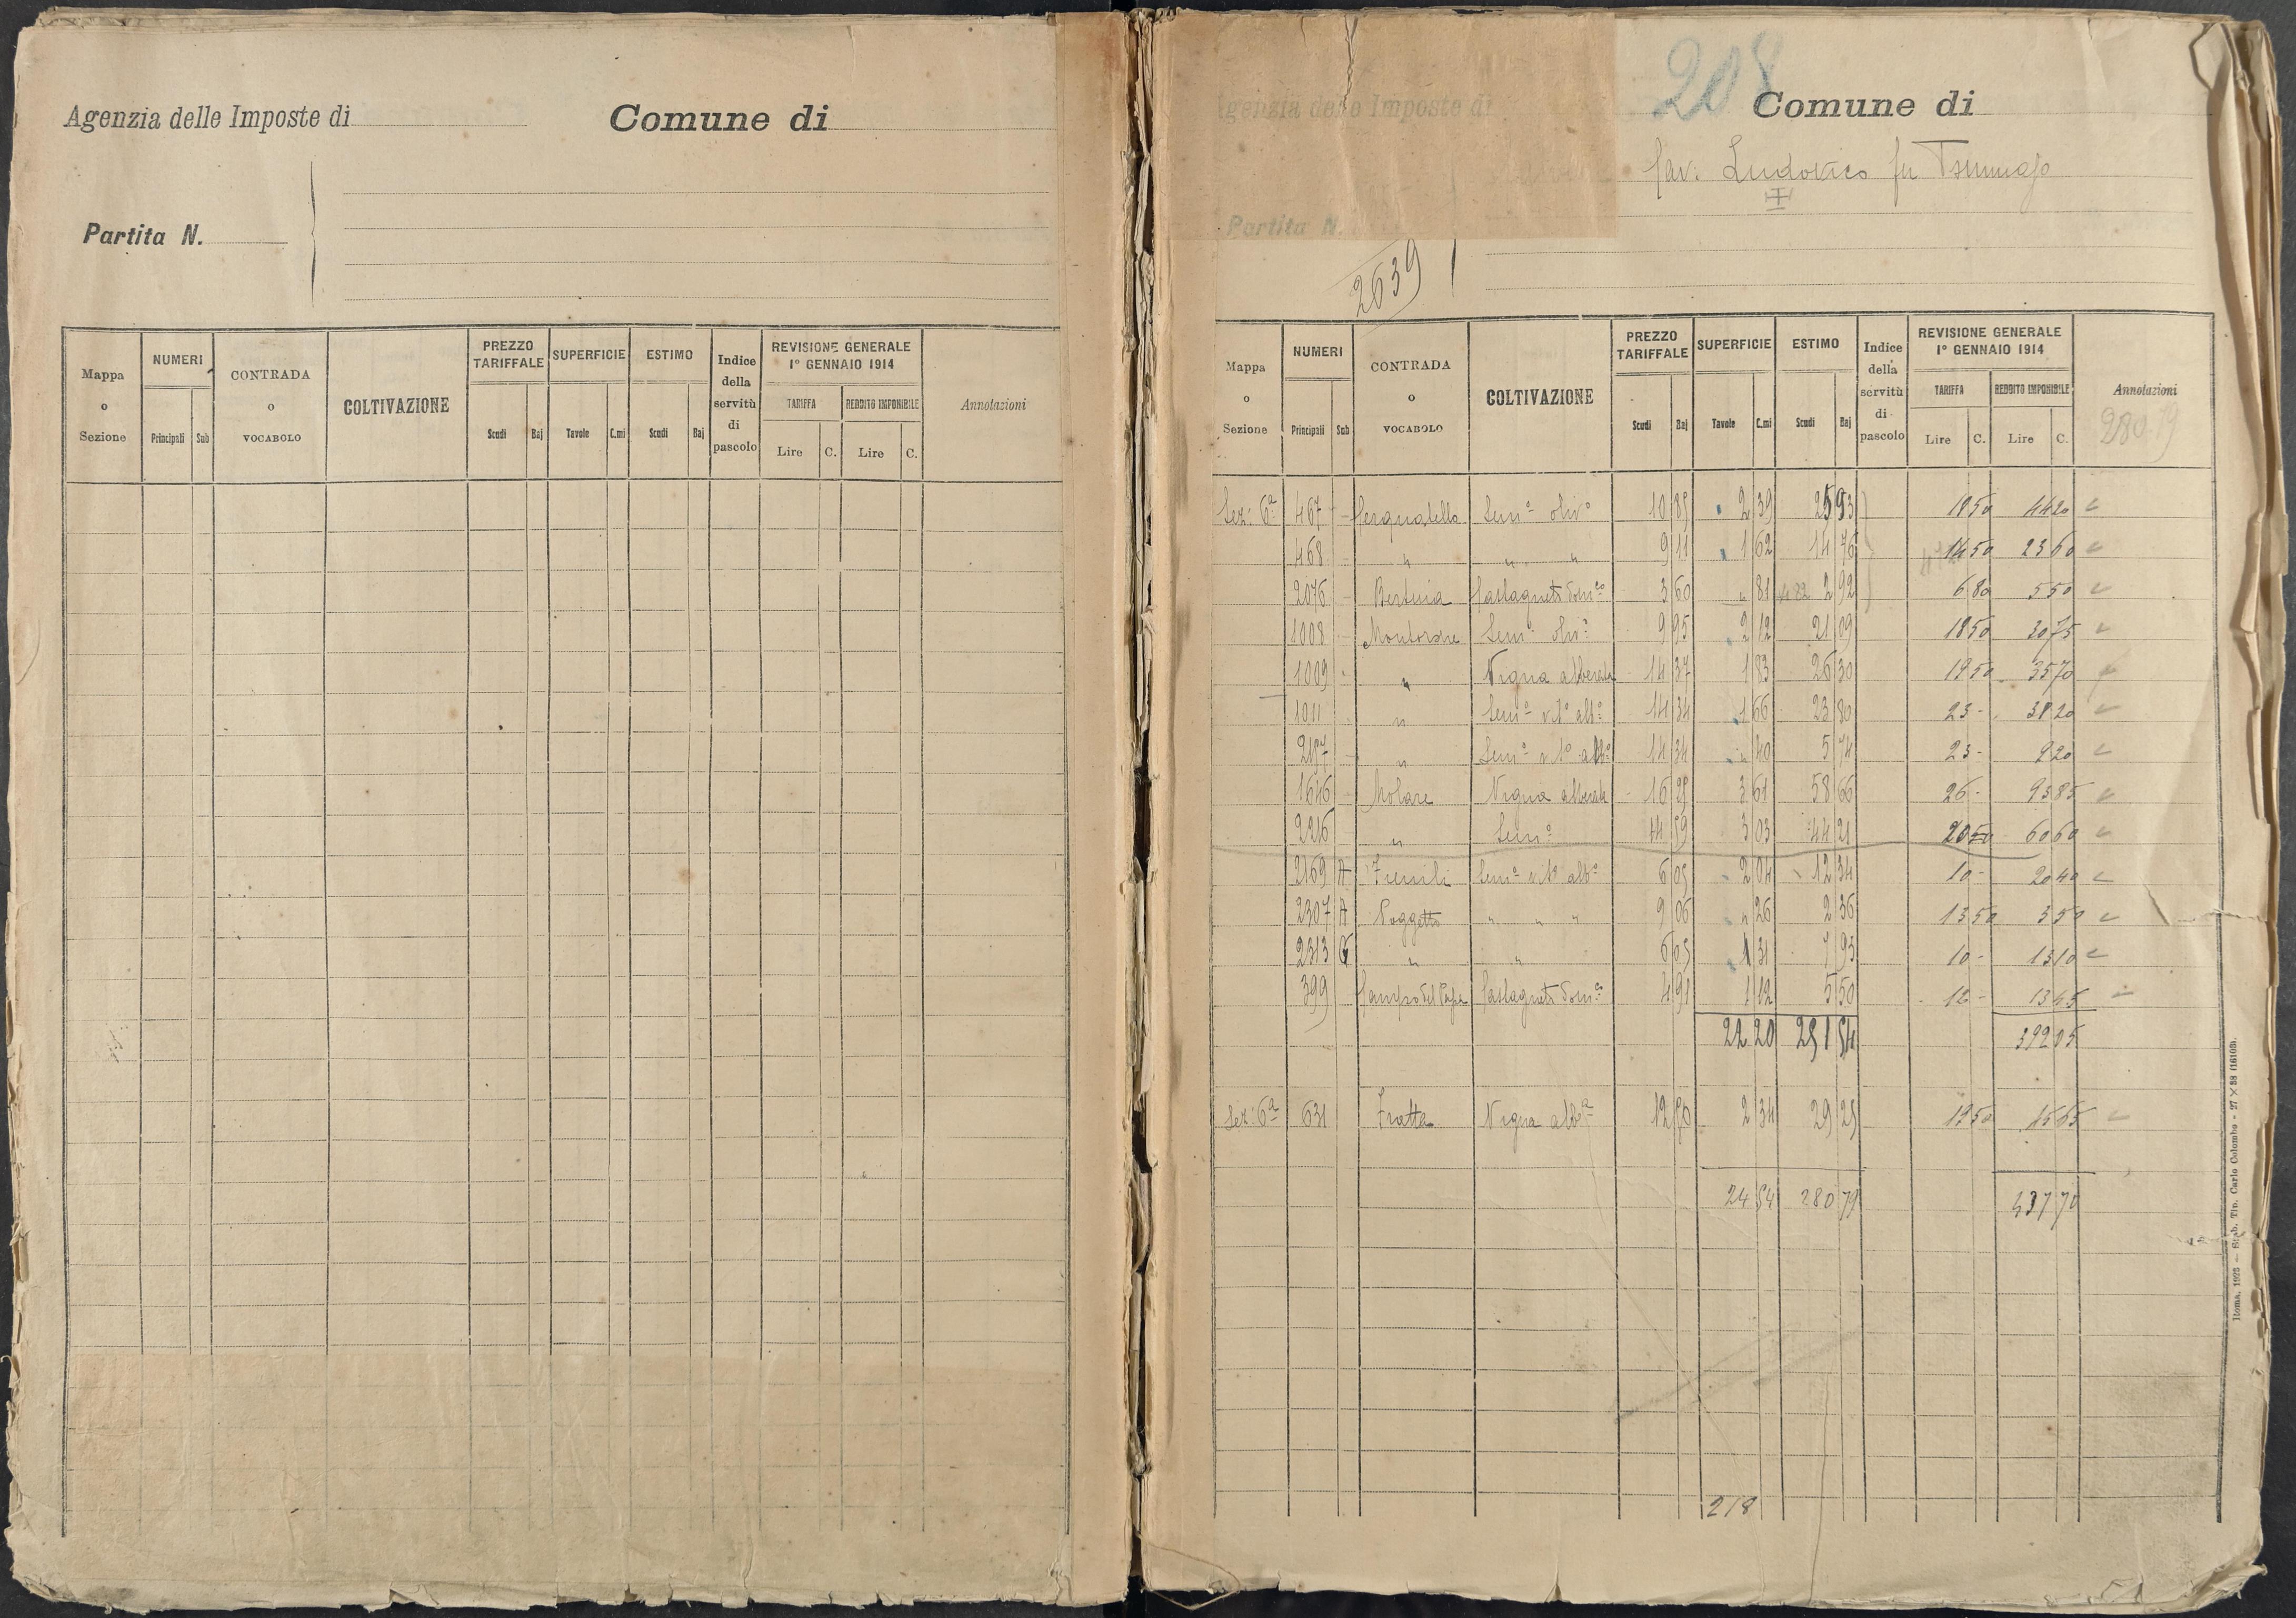 Agenzia delle Imposte di
Comune di
Partita N.
Mappa o Sezione
NUMERI
Principali Sub
CONTRADA o VOCABOLO
COLTIVAZIONE
PREZZO TARIFFALE
Scudi Baj
SUPERFICIE
Tavole C.mi
ESTIMO
Scudi Baj
Indice della servitù di pascolo
REVISIONE GENERALE 1° GENNAIO 1914
TARIFFA
Lire C.
REDDITO IMPONIBILE
Lire C.
Annotazioni
208
Agenzia delle Imposte di
Comune di
Ludovico fu
Partita N.
2639
Mappa o Sezione
NUMERI
Principali Sub
CONTRADA o VOCABOLO
COLTIVAZIONE
PREZZO TARIFFALE
Scudi Baj
SUPERFICIE
Tavole C.mi
ESTIMO
Scudi Baj
Indice della servitù di pascolo
REVISIONE GENERALE 1° GENNAIO 1914
TARIFFA
Lire C.
REDDITO IMPONIBILE
Lire C.
Annotazioni
280.79
Sez: 6ª 467 Semº olivº 10 85 2 39 25 93 18 50 44 20
468 " " " 9 11 1 62 14 76 14 50 23 60
2076 Castagneto domº 3 60 " 81 2 92 6 80 5 50
1008 Semº olivº 9 95 2 12 21 09 18 50
1009 " Vigna alberata 14 37 1 83 26 30 19 50 35 70
1011 " Semº vitº albº 14 34 1 66 23 80 23 - 38 20
" Semº vitº albº 14 34 " 40 5 74 23 - 9 20
1646 Molare Vigna alberata 16 25 3 61 58 66 26 - 93 85
2226 " Semº 14 59 3 03 44 21 20 60 60
2169 A Fienili Semº vitº albº 6 05 2 04 12 34 10 - 20 40
2307 A Poggetto " " " 9 06 " 26 2 36 13 50 3 50
2313 " " 6 05 1 31 7 93 10 - 13 10
399 Campo del Papa Castagneto domº 4 91 1 12 5 50 12 - 13 45
22 20 251 54 392 05
Sez: 6ª 631 Fratta Vigna albª 12 50 2 34 29 25 19 50 45 65
24 54 280 79 437 70
218
Roma, 1925 — Stab. Tip. Carlo Colombo - 27 × 38 (16103).